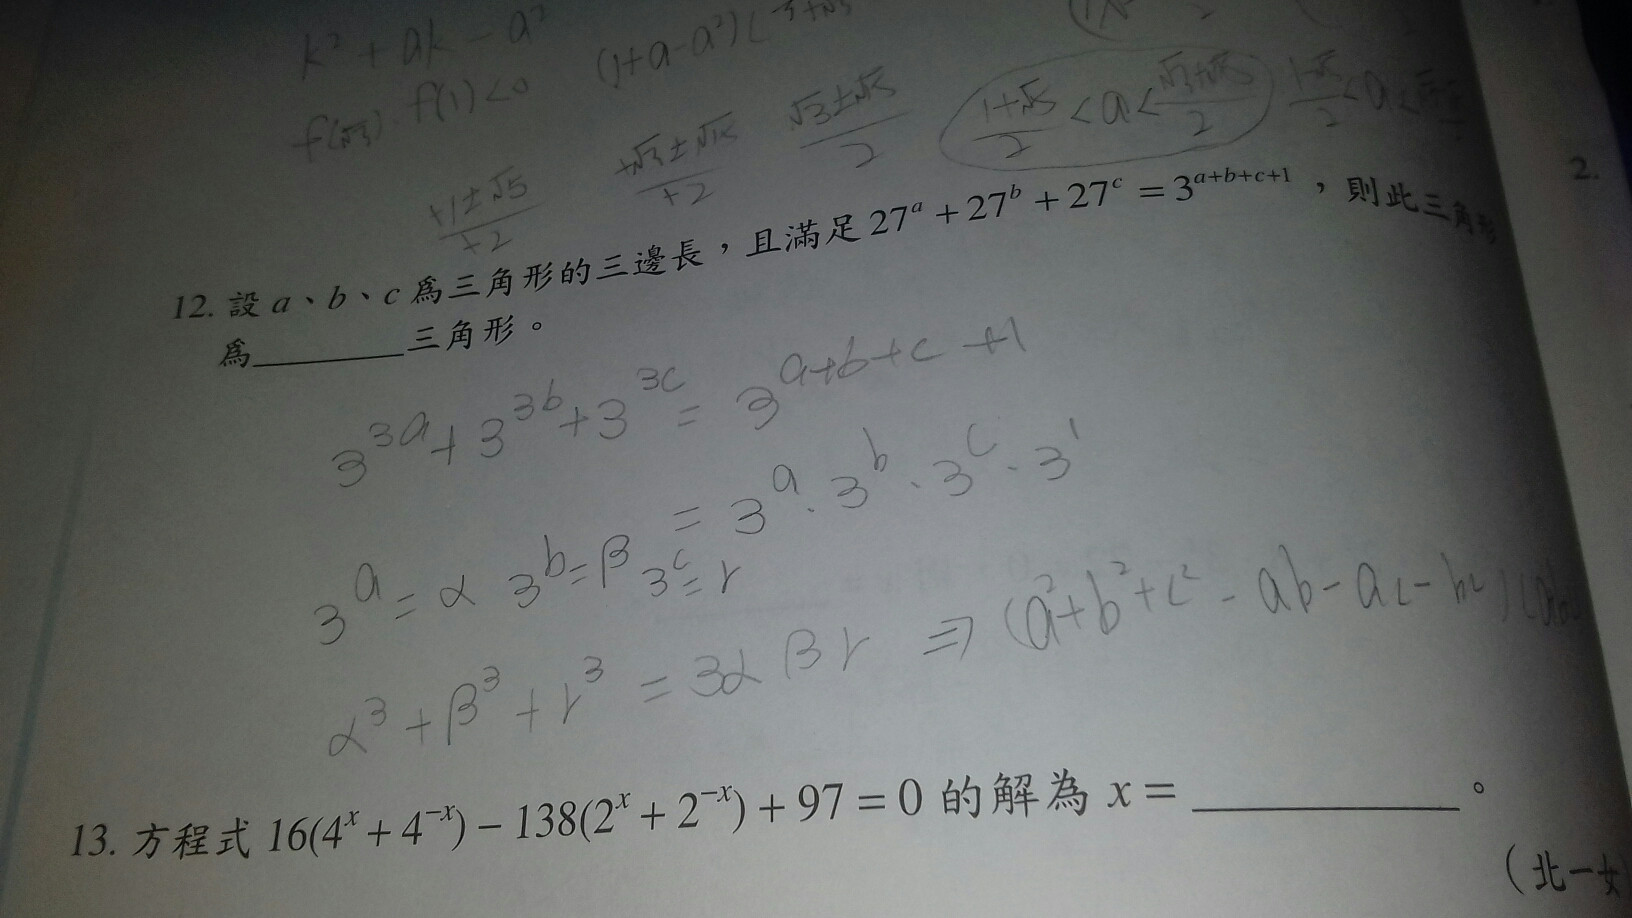 k² + ak - a²
f(√3) f(1)<0 (1+a-a²)(
+1±√5 / +2
+√3±√15 / +2
√3±√15 / 2
1+√5 / 2 < a < √3+√15 / 2
12. 設 a、b、c 爲三角形的三邊長，且滿足 27^a + 27^b + 27^c = 3^{a+b+c+1}，則此三角形
爲________三角形。
3^{3a} + 3^{3b} + 3^{3c} = 3^{a+b+c+1}
= 3^a · 3^b · 3^c · 3^1
3^a = α 3^b = β 3^c = r
α³ + β³ + r³ = 3αβr ⇒ (a²+b²+c²-ab-ac-bc)(
13. 方程式 16(4^x + 4^{-x}) − 138(2^x + 2^{-x}) + 97 = 0 的解為 x = ________。
（北一女
2.